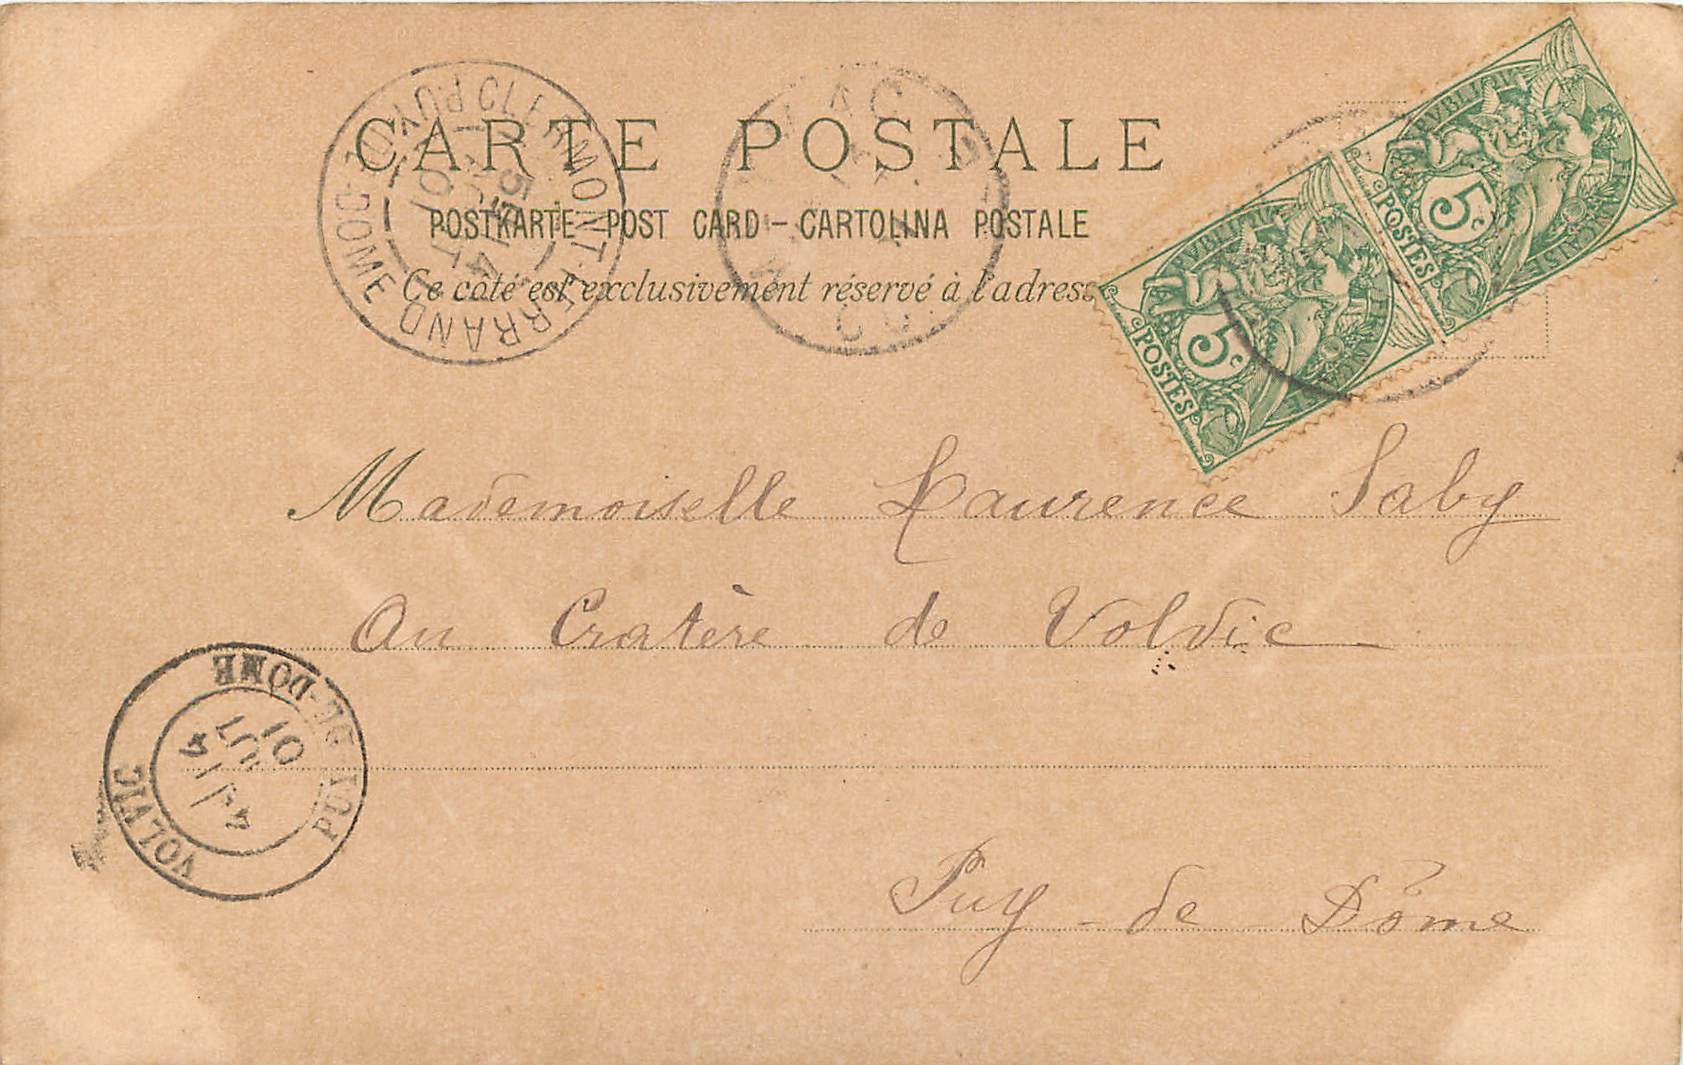 CARTE POSTALE
POSTKARTE - POST CARD - CARTOLINA POSTALE
Ce côté est exclusivement réservé à l'adresse
CLERMONT-FERRAND
PUY-DE-DOME
5c
POSTES
5c
POSTES
Mademoiselle Laurence Saby
Au Cratère de Volvic
VOLVIC
PUY-DE-DOME
01
Puy-de-Dôme